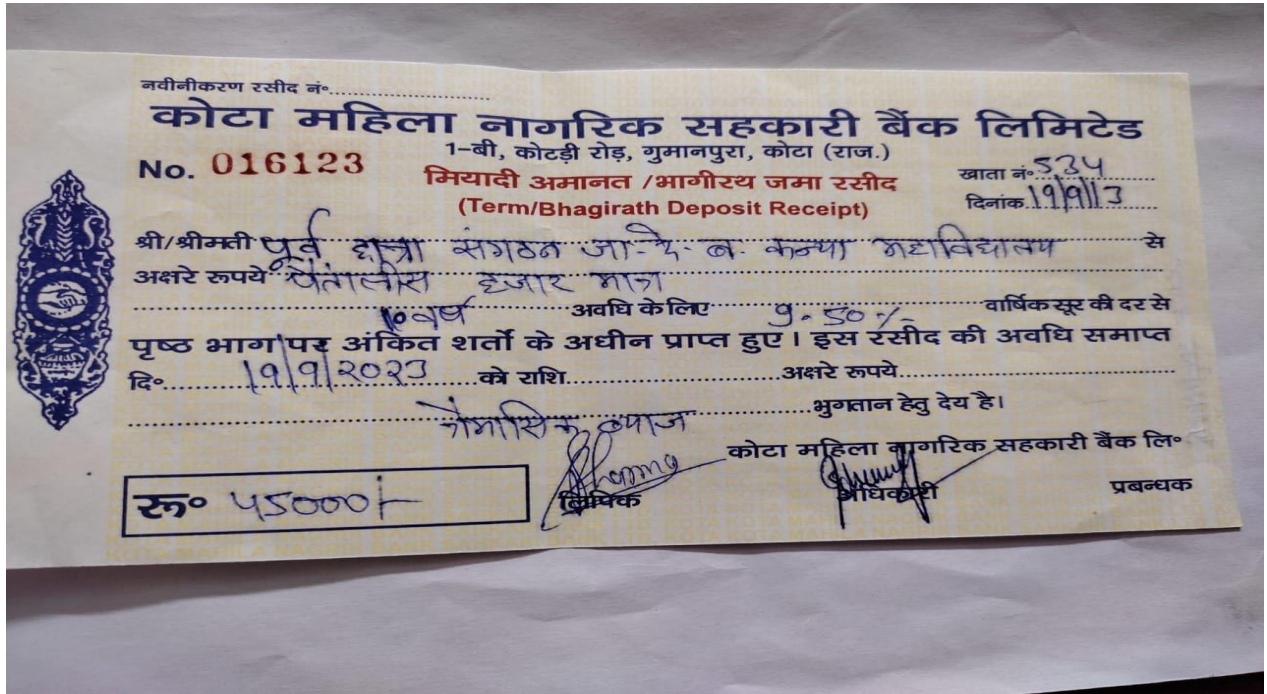 नवीनीकरण रसीद नं॰....................
कोटा महिला नागरिक सहकारी बैंक लिमिटेड
1-बी, कोटड़ी रोड़, गुमानपुरा, कोटा (राज.)
No. 016123
मियादी अमानत /भागीरथ जमा रसीद
खाता नं॰ 534
(Term/Bhagirath Deposit Receipt)
दिनांक 19/9/13
श्री/श्रीमती पूर्व छात्रा संगठन जा. दे. ब. कन्या महाविद्यालय से
अक्षरे रूपये पैंतालीस हजार मात्र
10 वर्ष अवधि के लिए 9.50% वार्षिक सूर की दर से
पृष्ठ भाग पर अंकित शर्तो के अधीन प्राप्त हुए। इस रसीद की अवधि समाप्त
दि॰ 19/9/2023 को राशि....................अक्षरे रूपये....................
त्रैमासिक ब्याज भुगतान हेतु देय है।
कोटा महिला नागरिक सहकारी बैंक लि॰
रू॰ 45000/-
Sharma
लिपिक अधिकारी प्रबन्धक